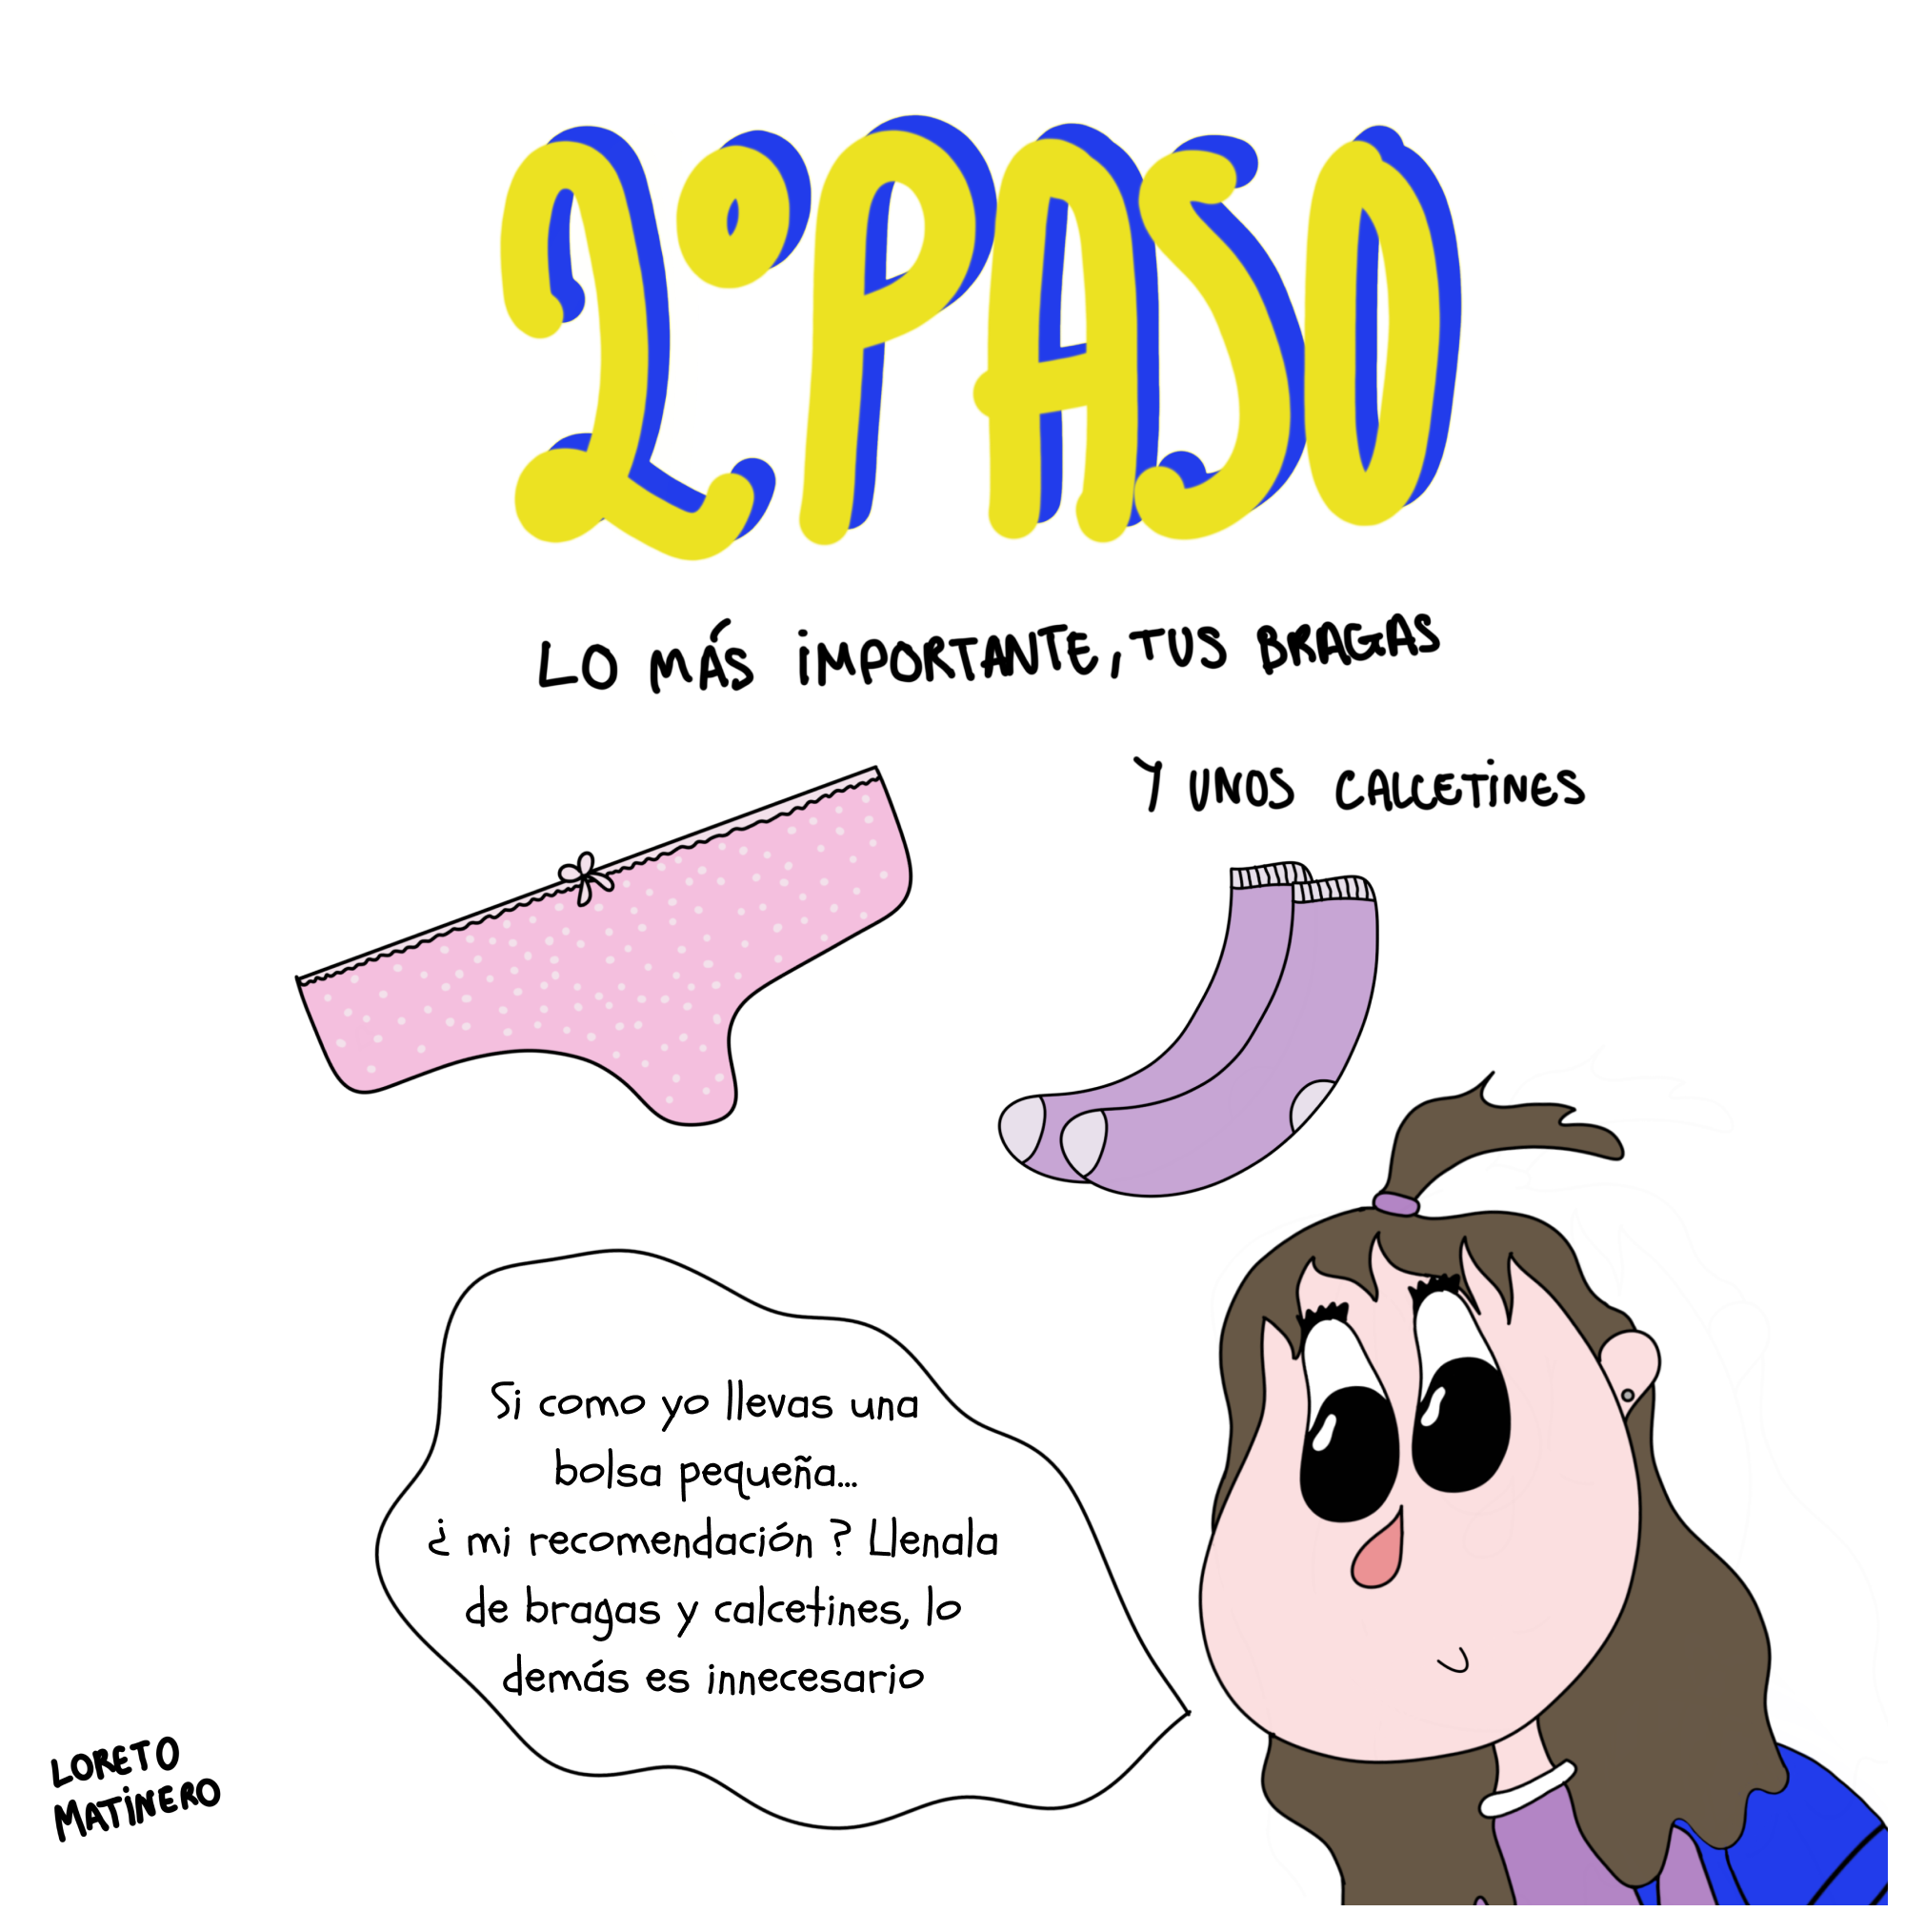 2º PASO
LO MÁS IMPORTANTE, TUS BRAGAS
Y UNOS CALCETINES
Si como yo llevas una
bolsa pequeña...
¿ mi recomendación ? Llenala
de bragas y calcetines, lo
demás es innecesario
LORETO
MATINERO